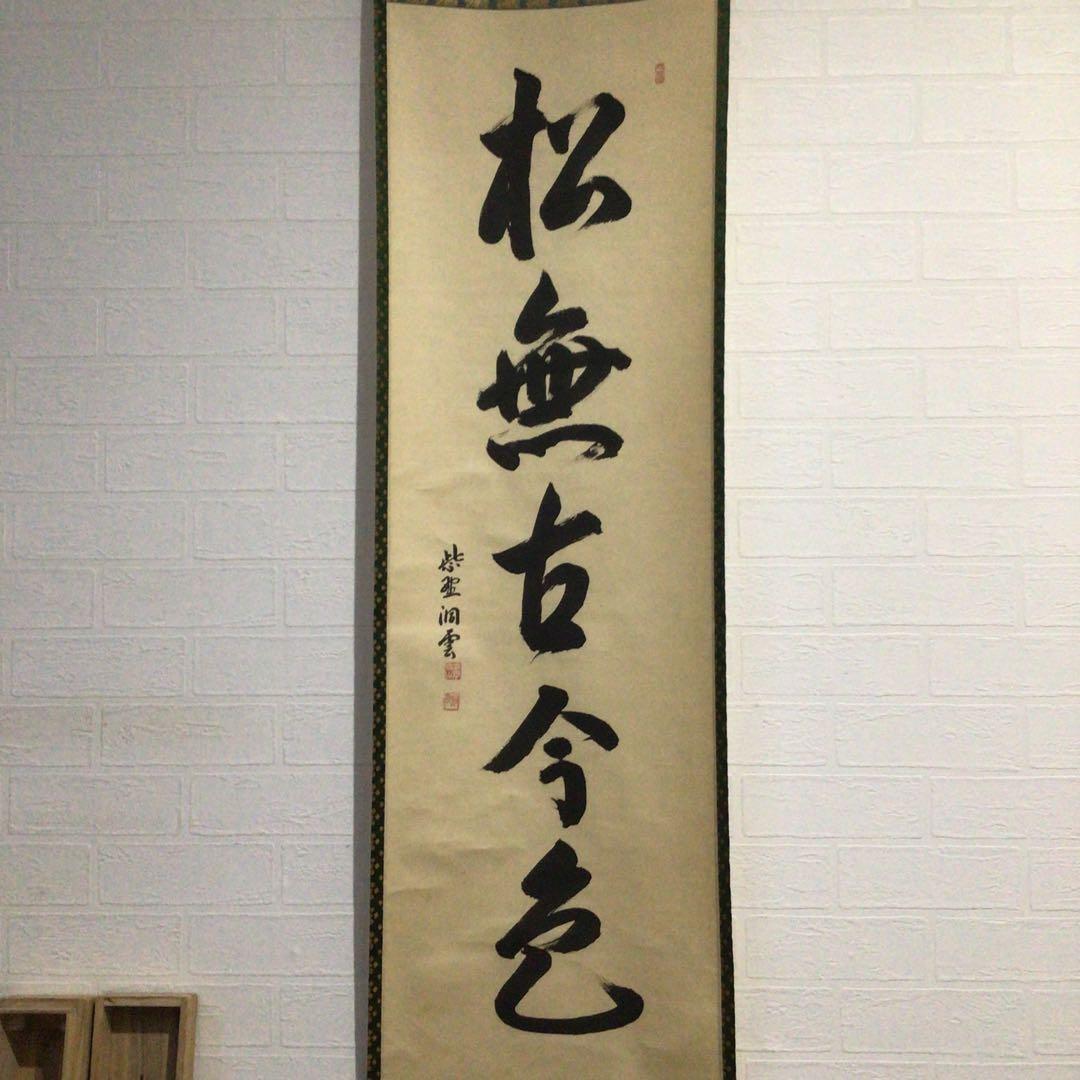 松無古今色
紫野洞雲